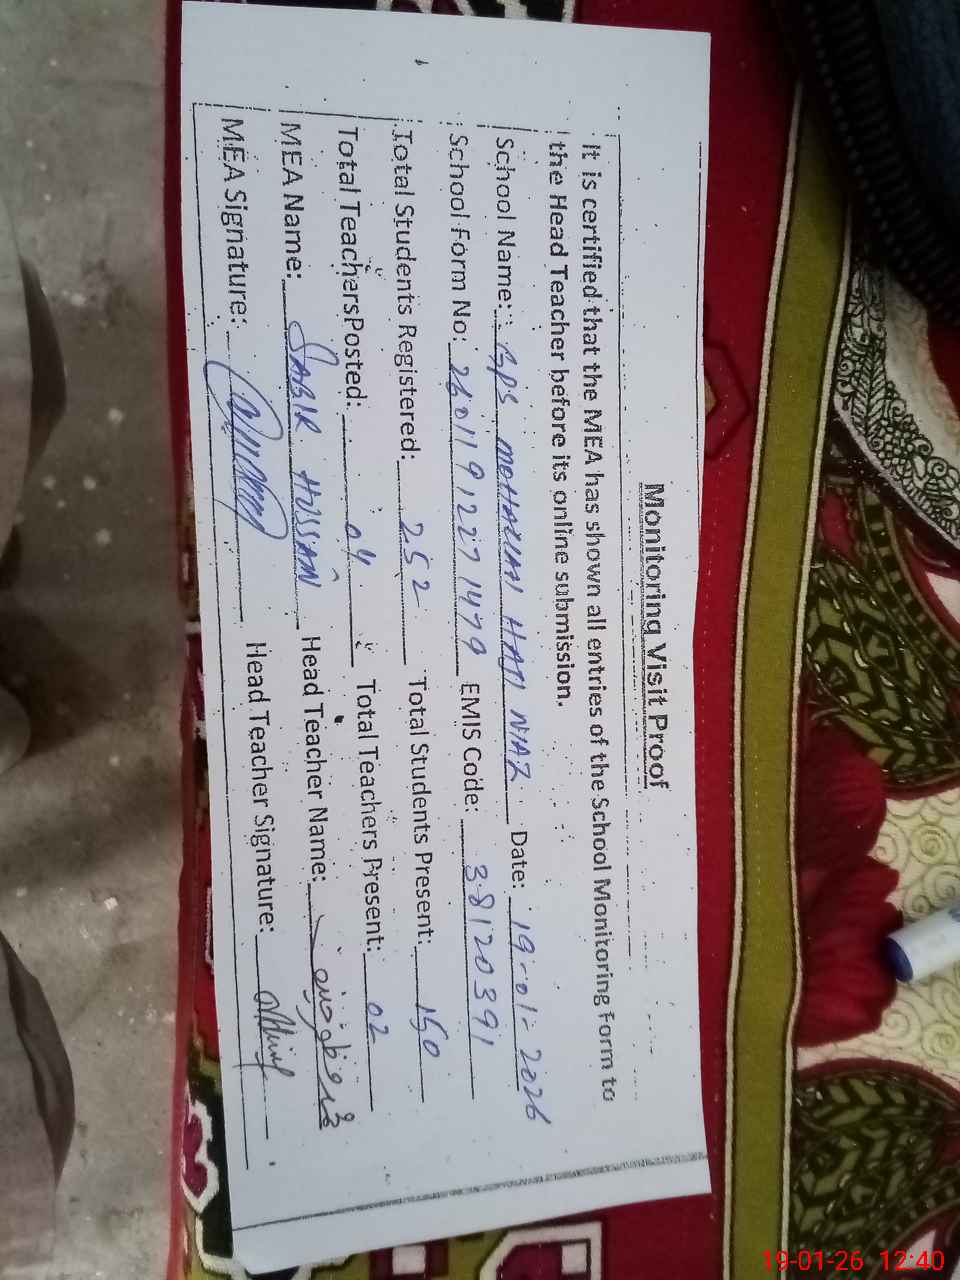 Monitoring Visit Proof
It is certified that the MEA has shown all entries of the School Monitoring Form to
the Head Teacher before its online submission.
School Name: GPS MOHANA HAJI NIAZ Date: 19-01-2026
School Form No: 26011912271479 EMIS Code: 38120391
Total Students Registered: 252 Total Students Present: 150
Total TeachersPosted: 04 Total Teachers Present: 02
MEA Name: SABIR HUSSAIN Head Teacher Name:
MEA Signature: Head Teacher Signature:
19-01-26 12:40